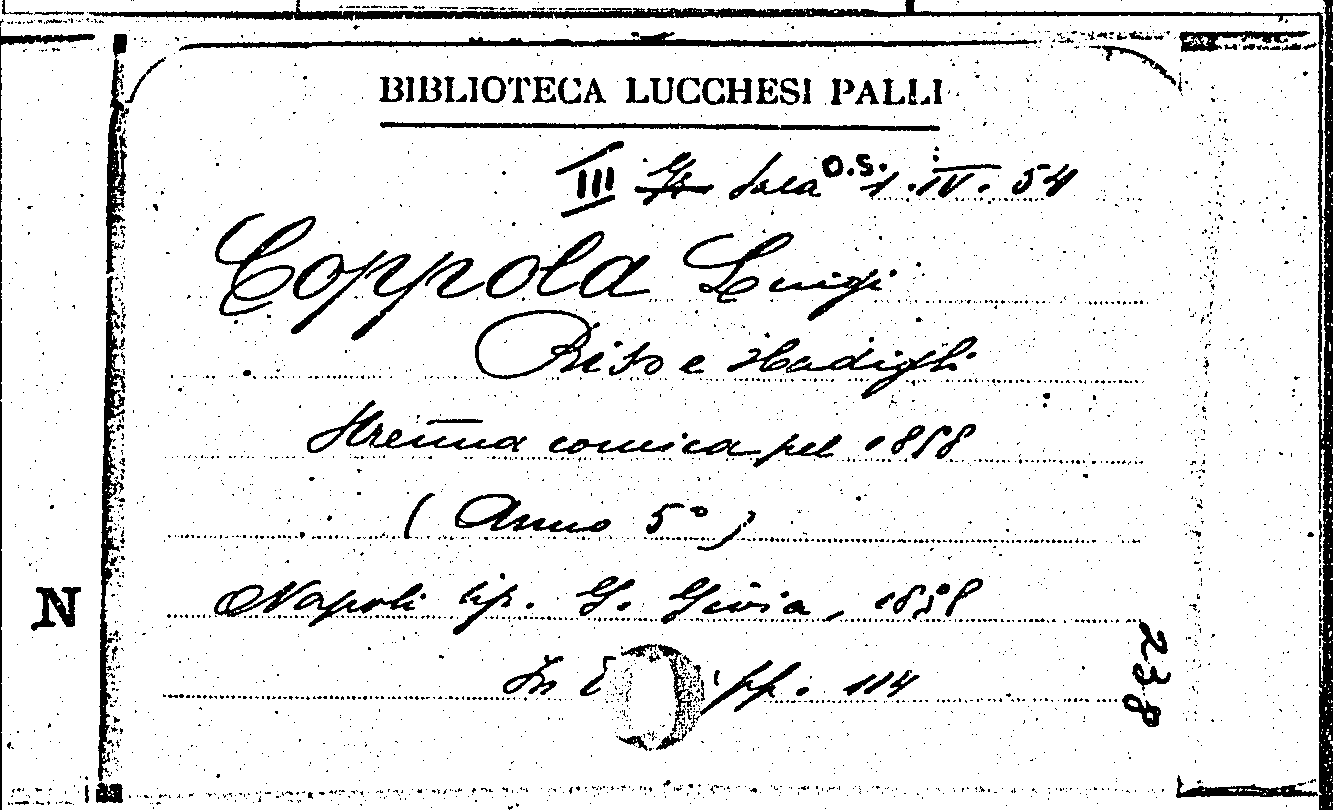 BIBLIOTECA LUCCHESI PALLI
III Sala O.S. 1. IV. 54
Coppola Luigi
Riso e sbadigli
Strenna comica pel 1858
(Anno 5°)
Napoli tip. G. Gioia, 1858
In pp. 114
N
238